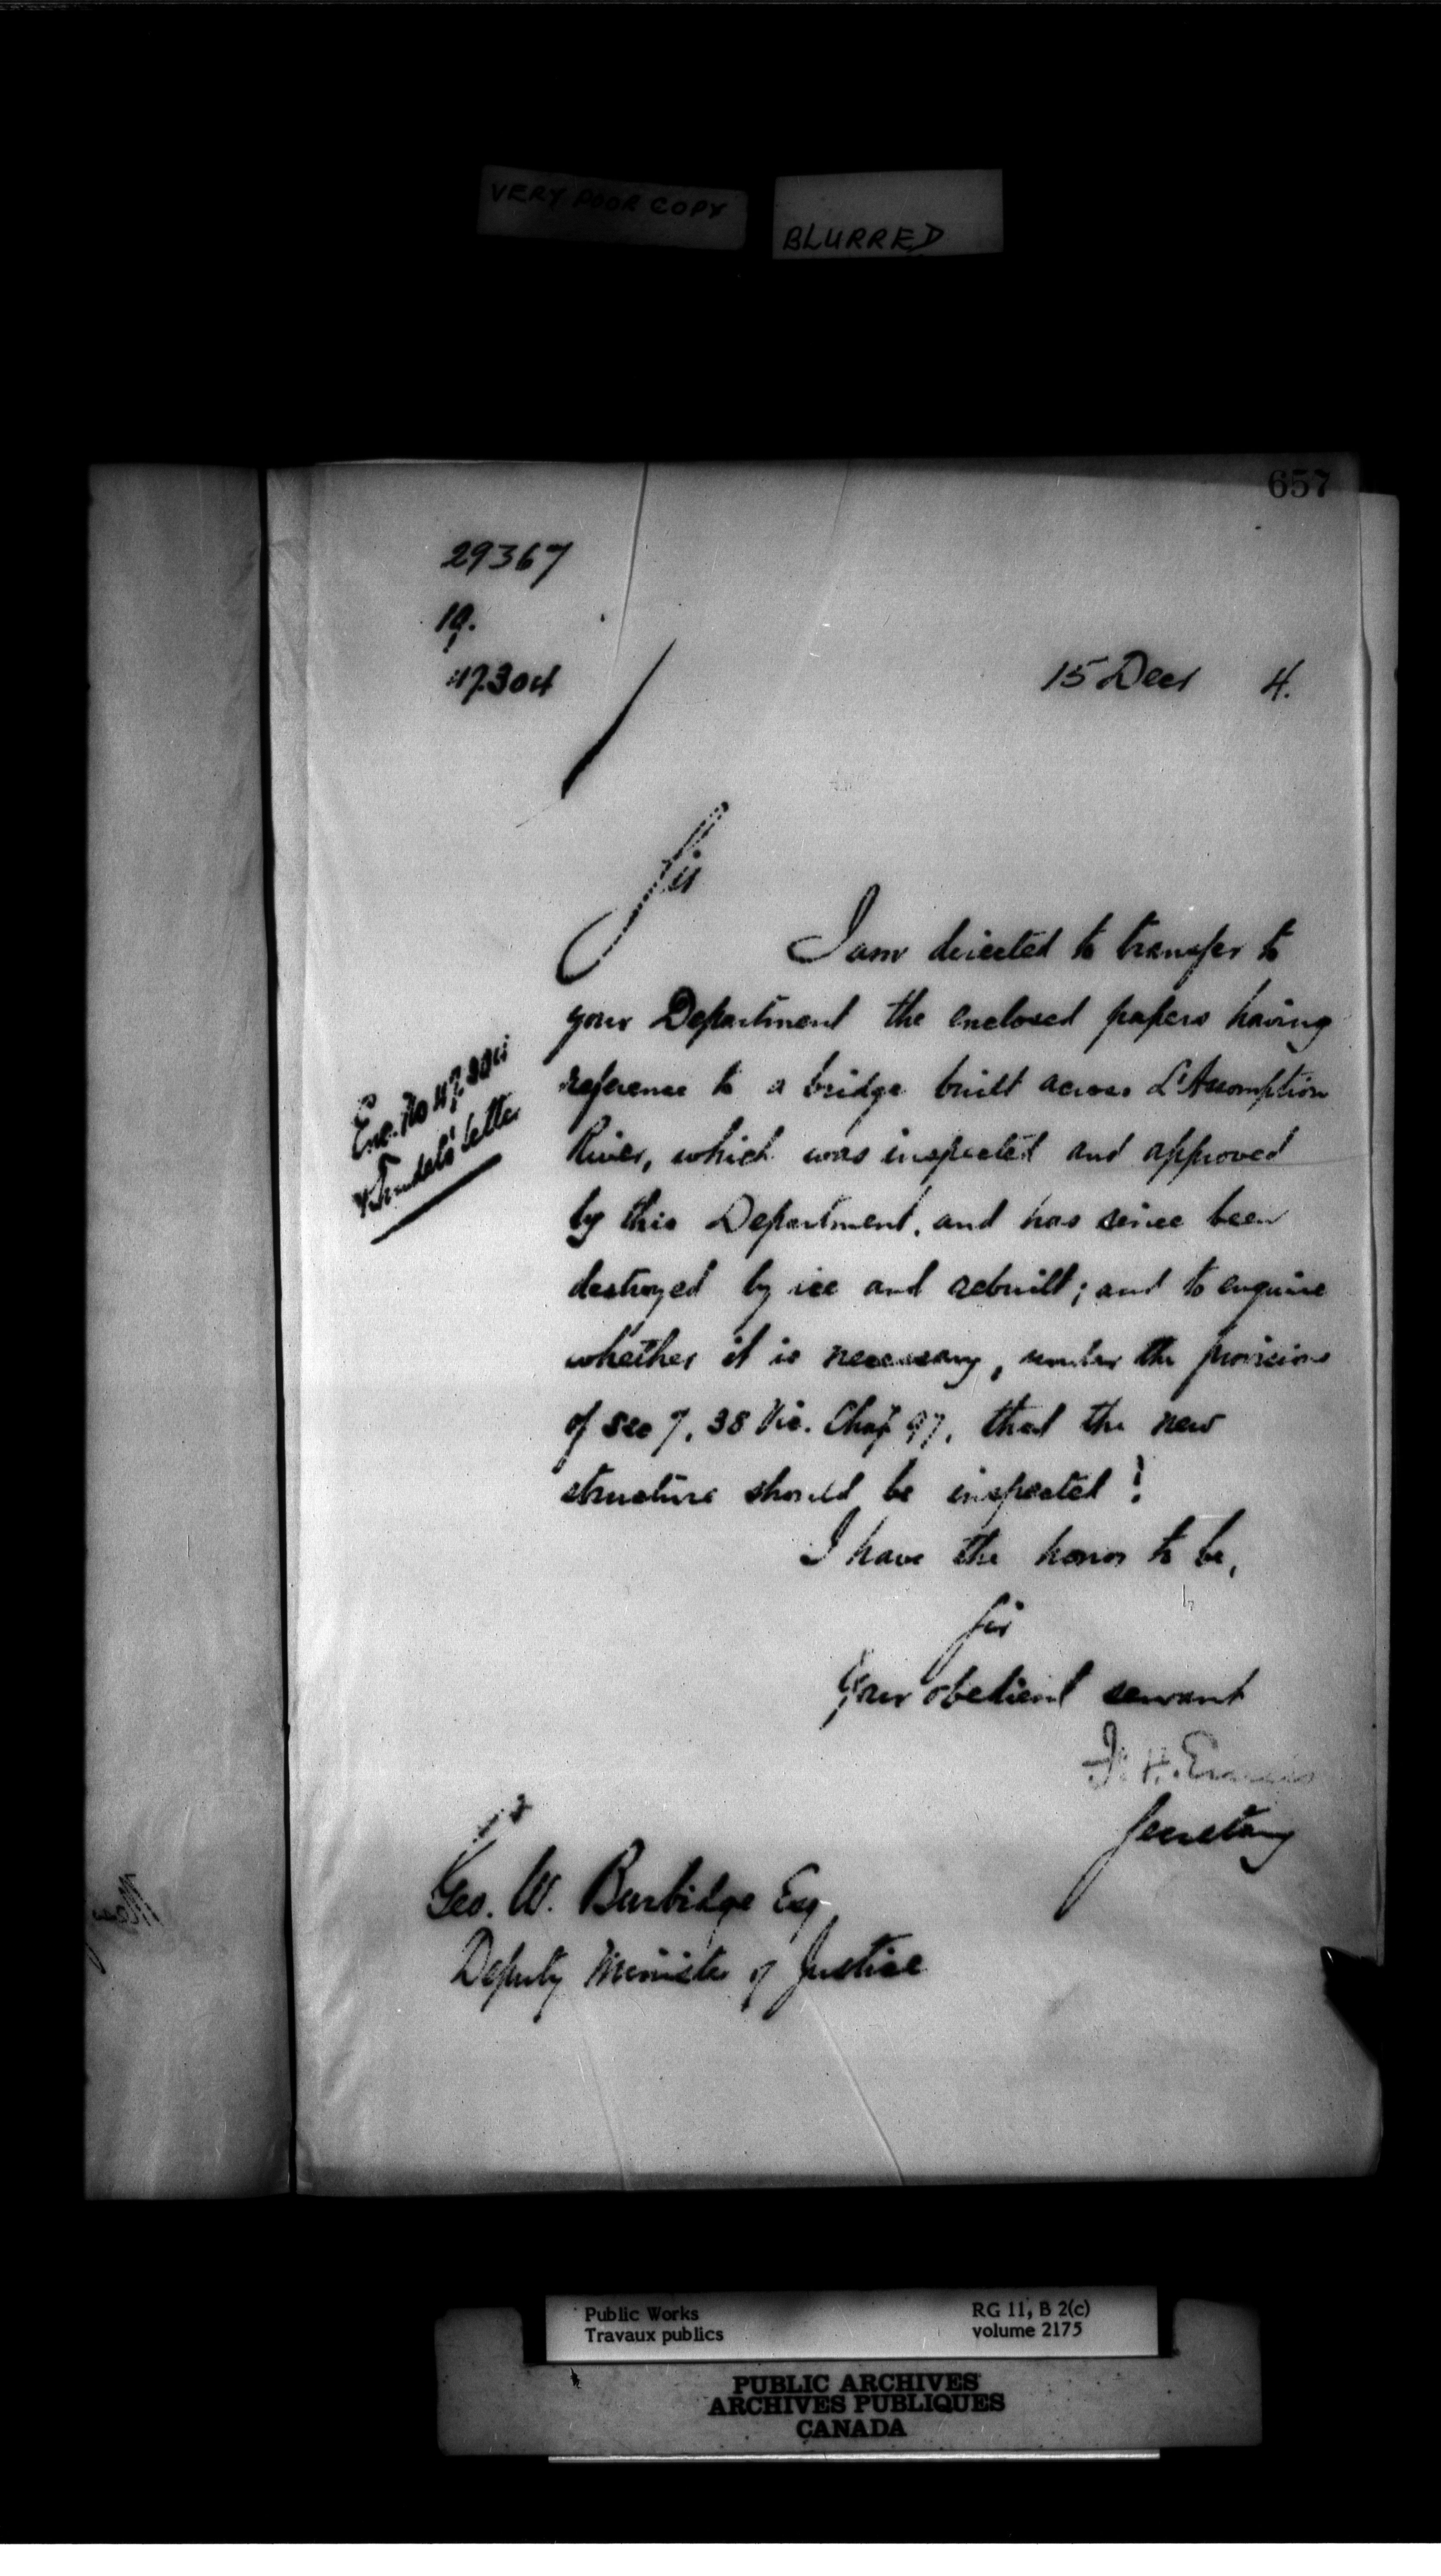 VERY POOR COPY
BLURRED
657
29367
19.
47304
15 Decr 4.
Sir
I am directed to transfer to
your Department the enclosed papers having
reference to a bridge built across L'Assomption
River, which was inspected and approved
by this Department, and has since been
destroyed by ice and rebuilt; and to enquire
whether it is necessary, under the provisions
of Sec 7, 38 Vic. Chap 97, that the new
structure should be inspected?
Enc. No 47.304
letter
I have the honor to be,
Sir
Your obedient servant
F. H. Ennis
Secretary
Geo. W. Burbidge Esq
Deputy Minister of Justice
Public Works
Travaux publics
RG 11, B 2(c)
volume 2175
PUBLIC ARCHIVES
ARCHIVES PUBLIQUES
CANADA